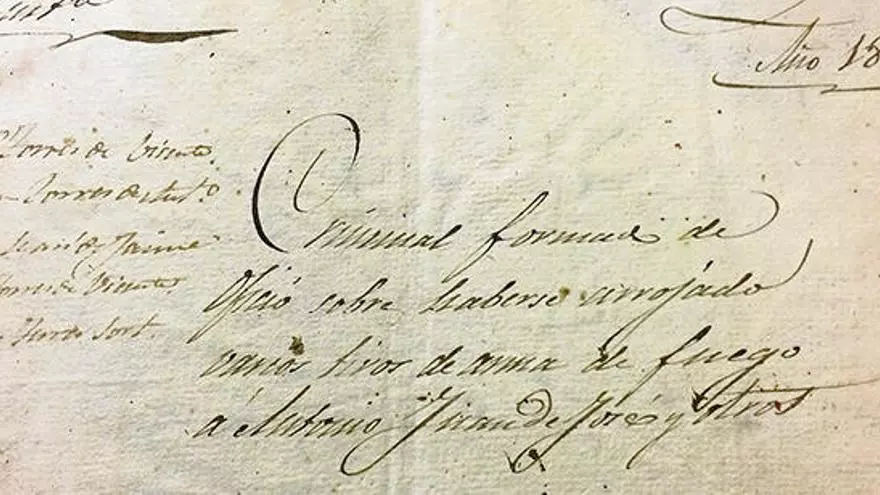 Año 18
Torres de Vicente
Torres de Ant.º
Juan de Jaime
Torres de Vicente
Torres Sort.
Criminal formada de
Oficio sobre haberse arrojado
varios tiros de arma de fuego
á Antonio Juan de José y otros